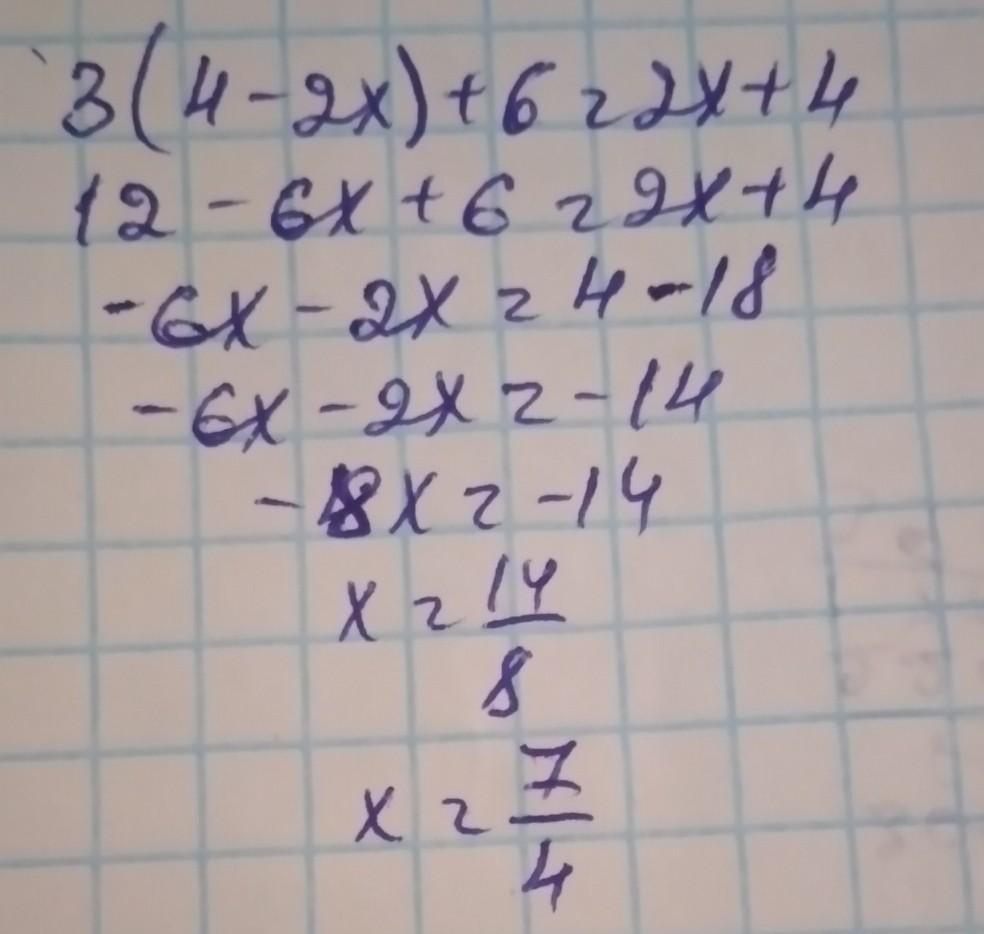 3(4-2x)+6=2x+4
12-6x+6=2x+4
-6x-2x=4-18
-6x-2x=-14
-8x=-14
x=14/8
x=7/4